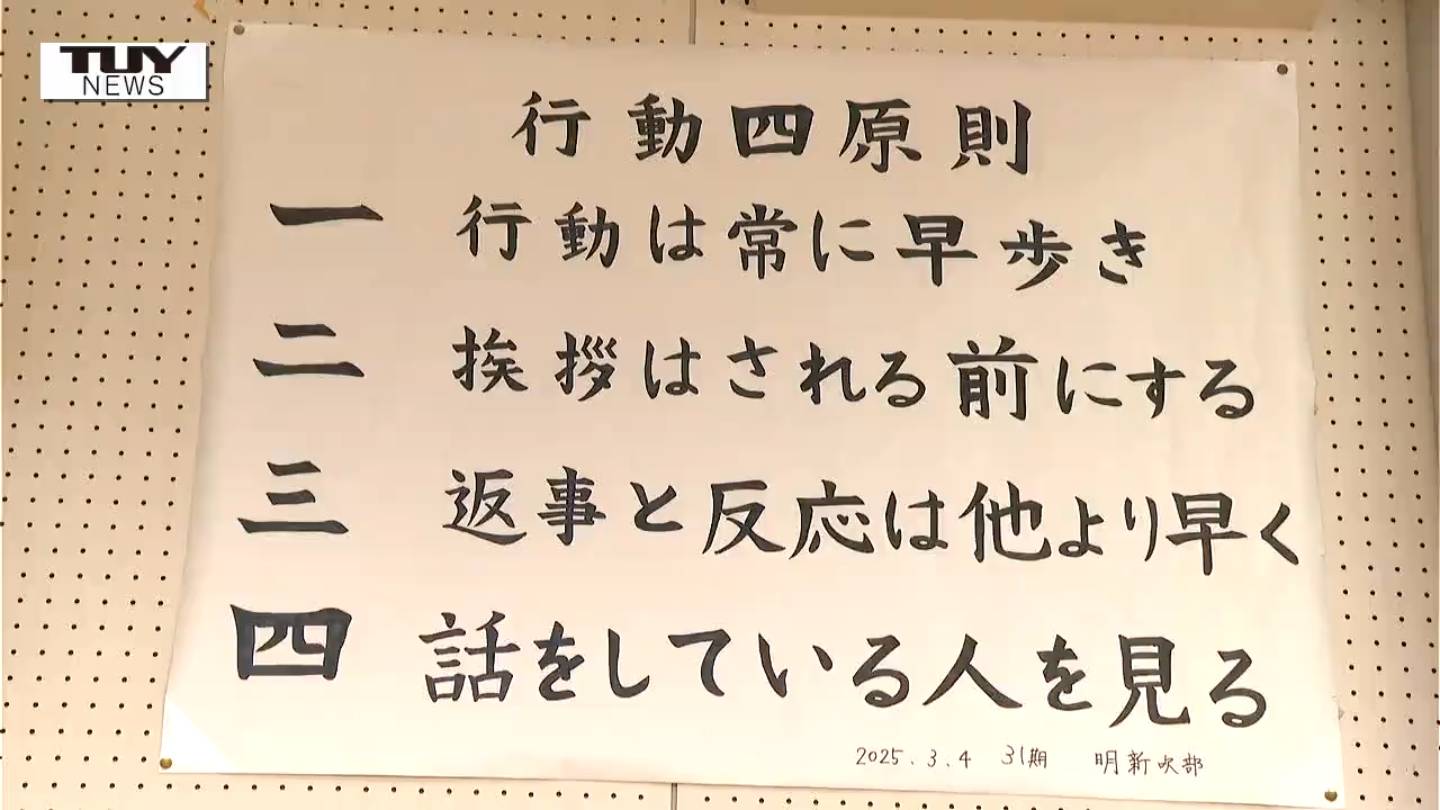 TUY
NEWS
行動四原則
一 行動は常に早歩き
二 挨拶はされる前にする
三 返事と反応は他より早く
四 話をしている人を見る
2025.3.4 31期 明新吹部